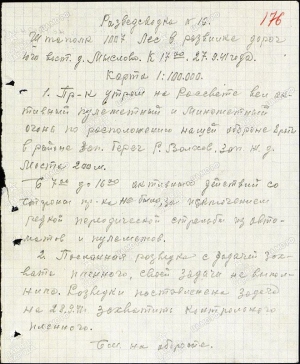 176
Разведсводка № 15.
Штапола 1007 Лес в развилке дорог
юго вост. д. Мыслово. К 17 00. 27.9.41 года.
Карта 1:100.000.
1. Пр-к утром на Рассвете вел ак-
тивный пулеметный и Минометный
огонь по расположению нашей обороне
в районе Зап. берег р. Волхов, Зап ж.д.
Моста 200 м.
С 7 00 до 16 00 активных действий со
стороны пр-ка не было, за исключением
редкой периодической стрельбы из авто-
матов и пулеметов.
2. Посланная разведка с задачей зах-
ватить пленного, своей задачи не выпол-
нила. Разведки поставлена задача
на 28.9.41 захватить контрольного
пленного.
См. на обороте.